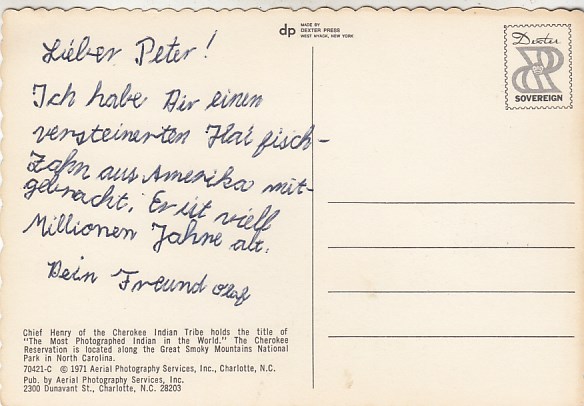 dp
MADE BY
DEXTER PRESS
WEST NYACK, NEW YORK
Dexter
SOVEREIGN
Lieber Peter!
Ich habe Dir einen
versteinerten Haifisch-
Zahn aus Amerika mit-
gebracht. Er ist viell
Millionen Jahre alt.
Dein Freund Olaf
Chief Henry of the Cherokee Indian Tribe holds the title of
"The Most Photographed Indian in the World." The Cherokee
Reservation is located along the Great Smoky Mountains National
Park in North Carolina.
70421-C © 1971 Aerial Photography Services, Inc., Charlotte, N.C.
Pub. by Aerial Photography Services, Inc.
2300 Dunavant St., Charlotte, N.C. 28203